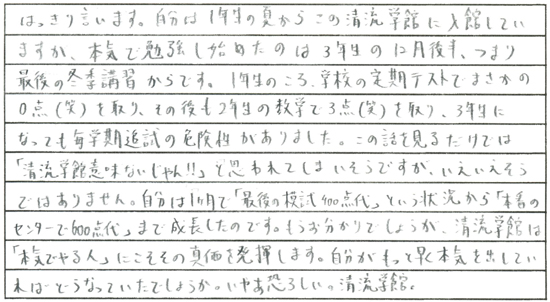 はっきり言います。自分は1年生の夏からこの清流学館に入館してい
ますが、本気で勉強し始めたのは3年生の12月後半、つまり
最後の冬季講習からです。1年生のころ、学校の定期テストでまさかの
0点(笑)を取り、その後も2年生の数学で3点(笑)を取り、3年生に
なっても毎学期追試の危険性がありました。この話を見るだけでは
「清流学館意味ないじゃん!!」と思われてしまいそうですが、いえいえそう
ではありません。自分は1ヶ月で「最後の模試400点代」という状況から「本番の
センターで600点代」まで成長したのです。もうお分かりでしょうが、清流学館は
「本気でやる人」にこそその真価を発揮します。自分がもっと早く本気を出してい
ればどうなっていたでしょうか。いやあ恐ろしい。清流学館。